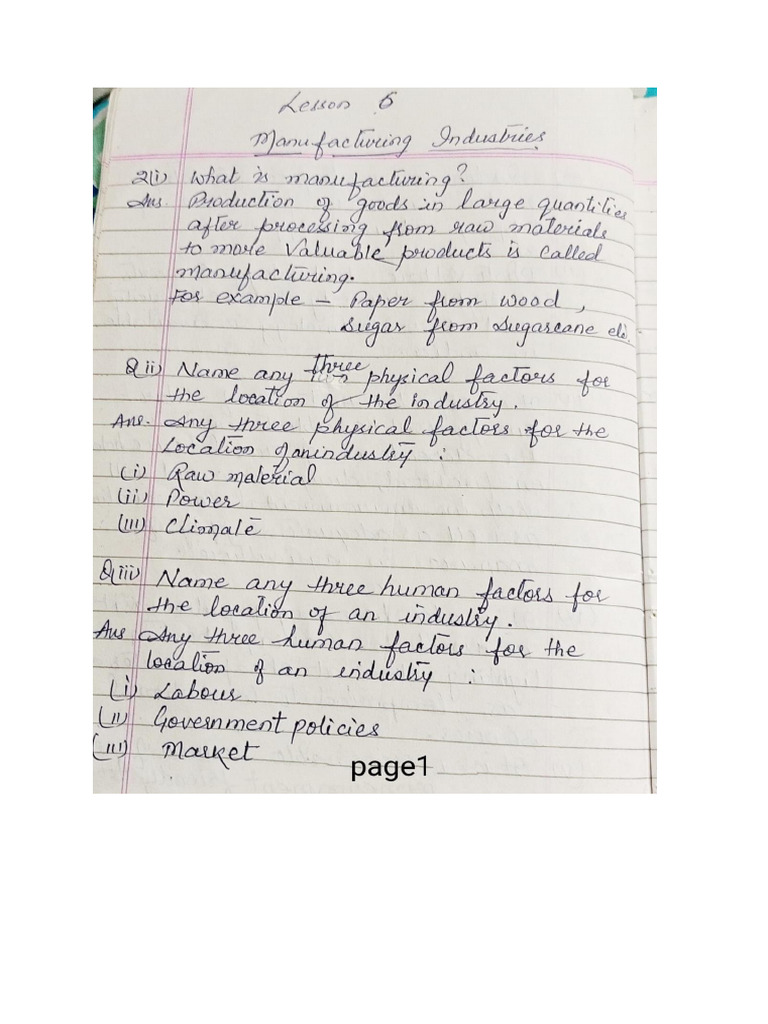 Lesson 6
Manufacturing Industries
Q(i) What is manufacturing?
Ans. Production of goods in large quantities
after processing from raw materials
to more Valuable products is called
manufacturing.
For example - Paper from wood,
Sugar from Sugarcane etc.
Q ii) Name any three physical factors for
the location of the industry.
Ans. Any three physical factors for the
Location of an industry :
(i) Raw material
(ii) Power
(III) Climate
Q(iii) Name any three human factors for
the location of an industry.
Ans Any three human factors for the
location of an industry :
(i) Labour
(II) Government policies
(III) Market
page1